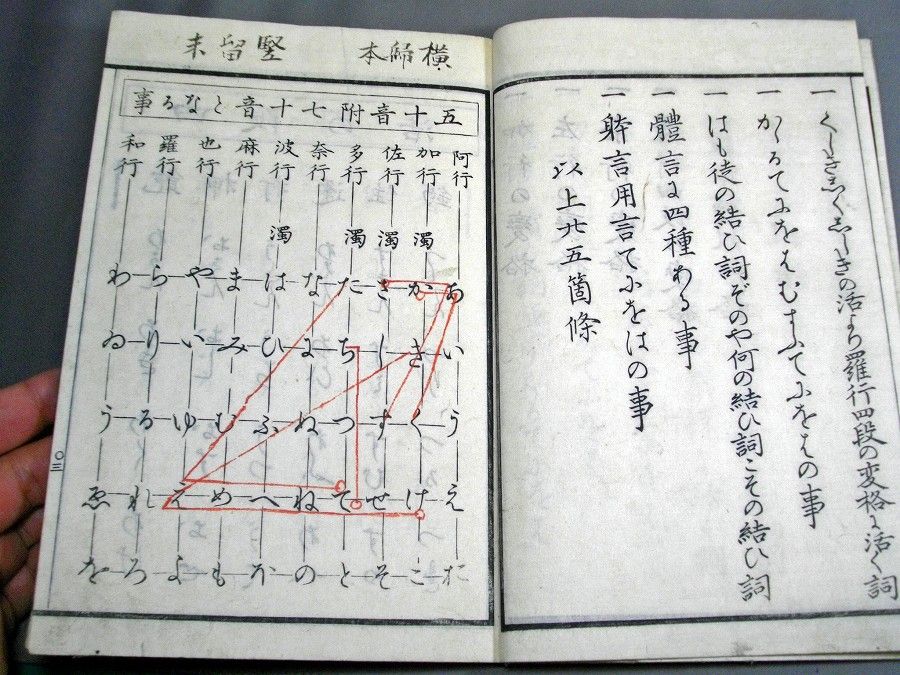 一 くしきしくししきの活より羅行四段の変格に活く詞
一 かゝるてにをはむすふてにをはの事
一 はも徒の結ひ詞ぞのや何の結ひ詞こその結ひ詞
一 體言に四種ある事
一 躰言用言てにをはの事
以上廿五箇條
横歸本 竪留末
五十音附七十音となる事
阿行 加行 佐行 多行 奈行 波行 麻行 也行 羅行 和行
濁 濁 濁 濁
あ か さ た な は ま や ら わ
い き し ち に ひ み い り ゐ
う く す つ ぬ ふ む ゆ る う
え け せ て ね へ め え れ ゑ
お こ そ と の ほ も よ ろ を
〇三